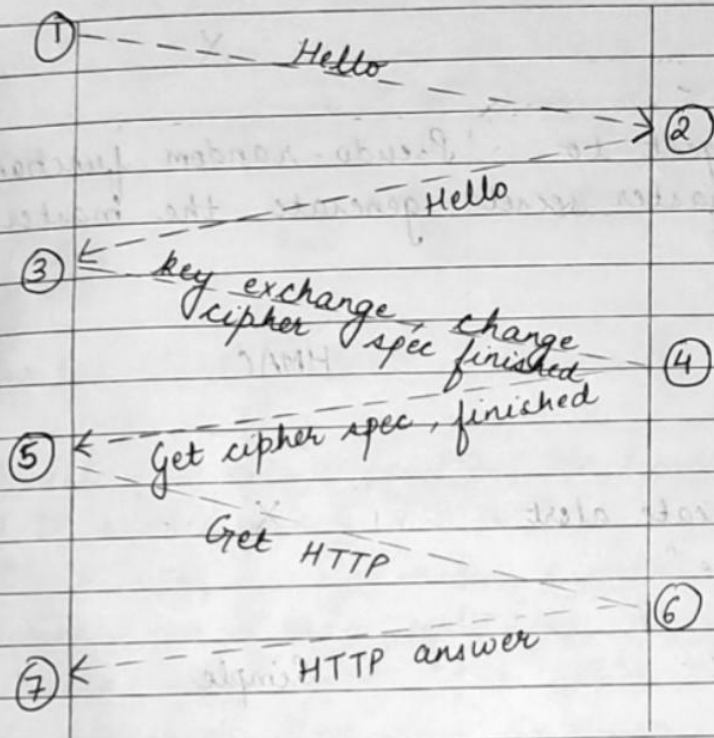 ①
Hello
②
Hello
③
key exchange, change
cipher spec finished
④
Get cipher spec, finished
⑤
Get HTTP
⑥
HTTP answer
⑦